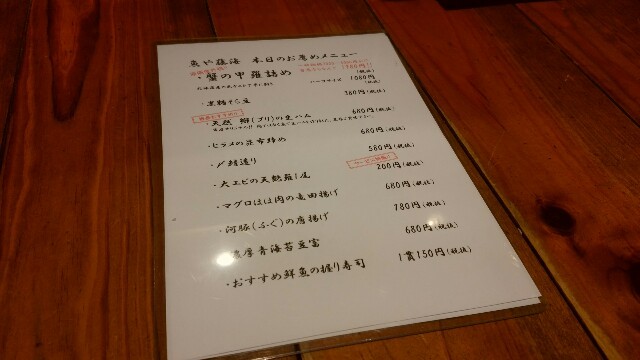 魚や藤海 本日のお薦めメニュー
・蟹の甲羅詰め 1780円(税抜)
ハーフサイズ 1080円(税抜)
・黒糖そら豆 380円(税抜)
・天然 鰤(ブリ)の生ハム 680円(税抜)
・ヒラメの昆布締め 680円(税抜)
・〆鯖造り 580円(税抜)
・大エビの天麩羅1尾 200円(税抜)
・マグロほほ肉の竜田揚げ 680円(税抜)
・河豚(ふぐ)の唐揚げ 780円(税抜)
濃厚青海苔豆富 680円(税抜)
・おすすめ鮮魚の握り寿司 1貫150円(税抜)